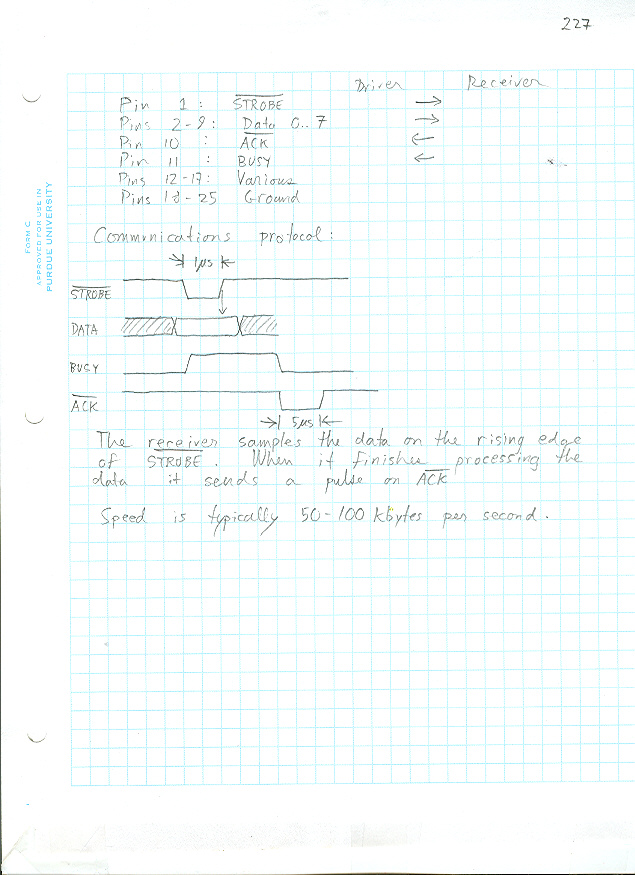 227
Driver Receiver
Pin 1 : S̅T̅R̅O̅B̅E̅ →
Pins 2-9: Data 0..7 →
Pin 10 : A̅C̅K̅ ←
Pin 11 : BUSY ←
Pins 12-17: Various
Pins 18-25 Ground
FORM C
APPROVED FOR USE IN
PURDUE UNIVERSITY
Communications protocol:
1μs
S̅T̅R̅O̅B̅E̅
DATA
BUSY
A̅C̅K̅
5μs
The receiver samples the data on the rising edge
of S̅T̅R̅O̅B̅E̅. When it finishes processing the
data it sends a pulse on A̅C̅K̅
Speed is typically 50-100 kbytes per second.